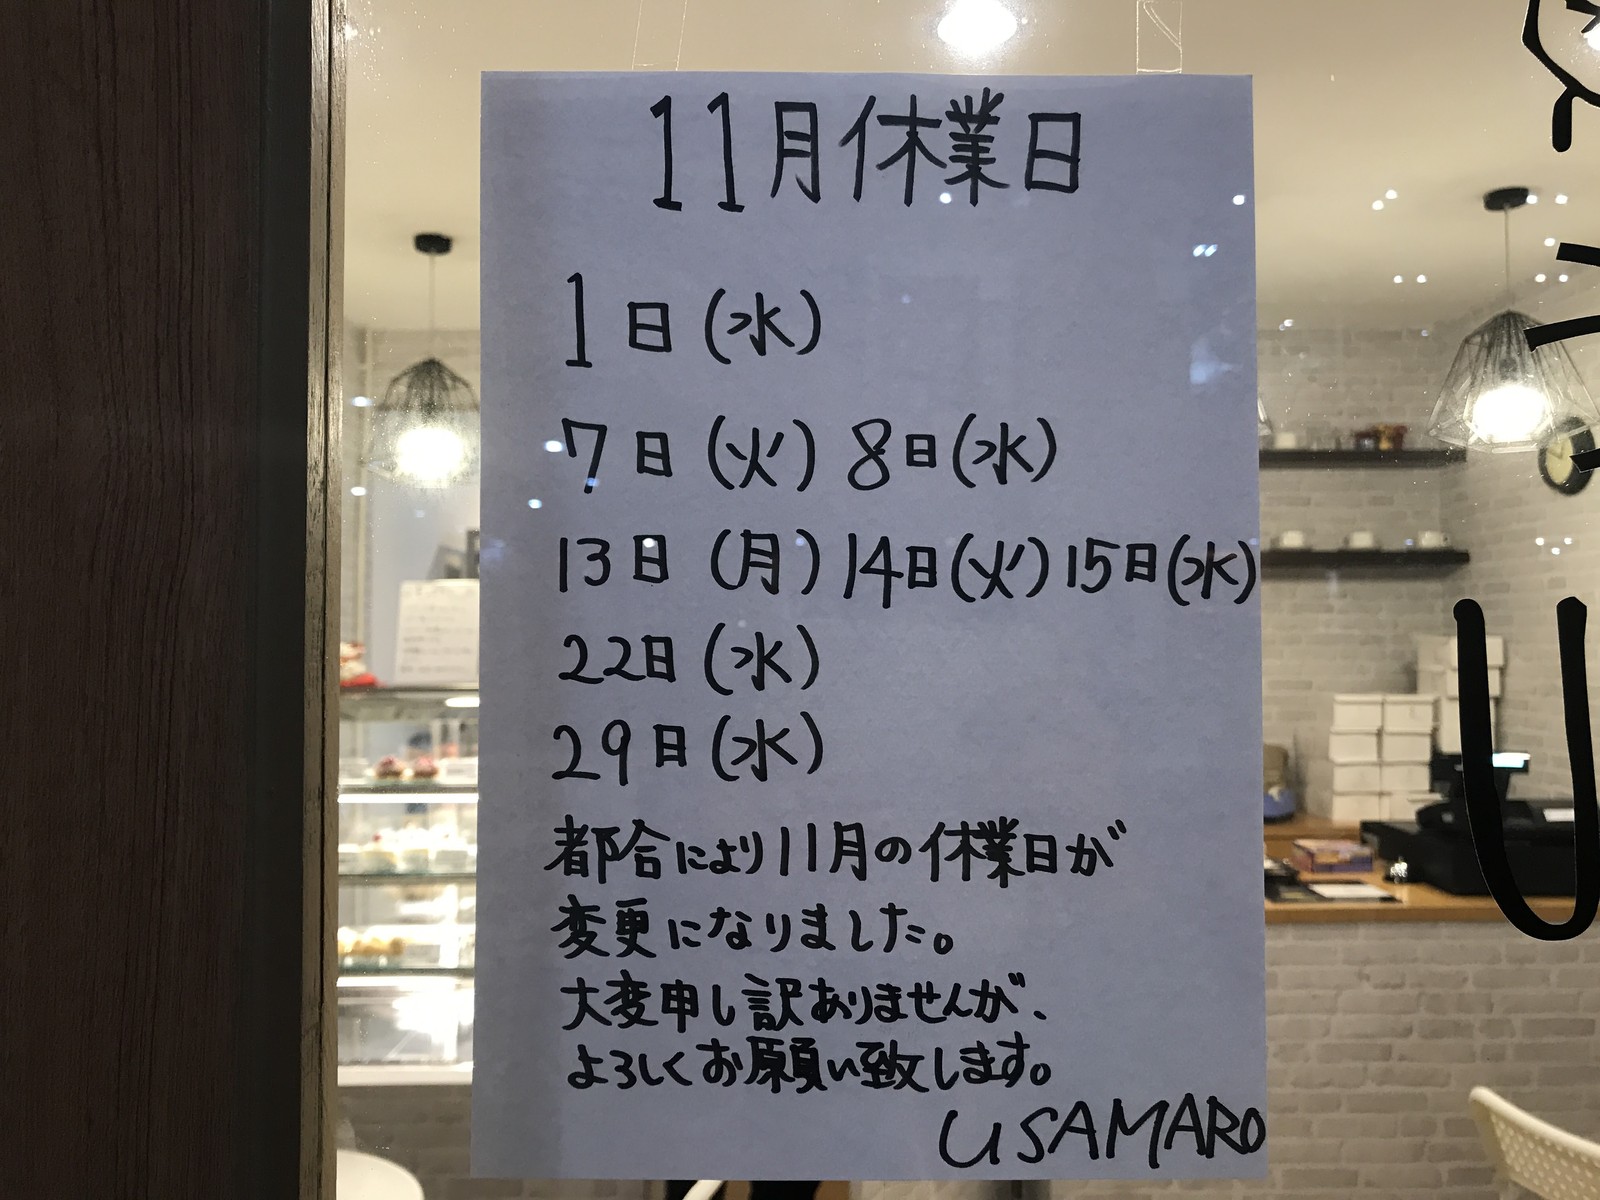 11月休業日
1日(水)
7日(火) 8日(水)
13日(月) 14日(火) 15日(水)
22日(水)
29日(水)
都合により11月の休業日が
変更になりました。
大変申し訳ありませんが、
よろしくお願い致します。
USAMARO
U